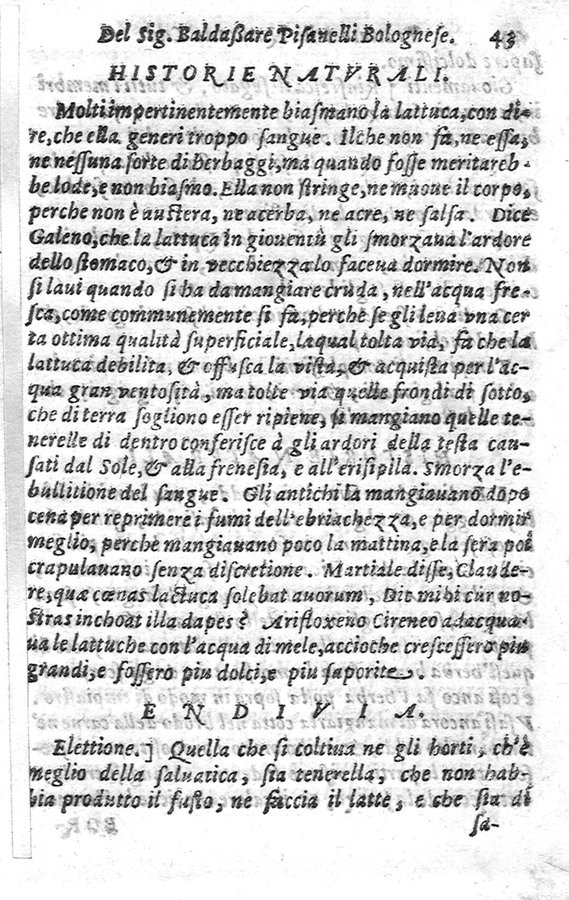 Del Sig. Baldaßare Piſanelli Bologneſe. 43
HISTORIE NATVRALI.
Molti impertinentemente biaſmano la lattuca, con di-
re, che ella generi troppo sangue. Ilche non fà, ne eſſa,
ne neſſuna ſorte di herbaggi, ma quando foſſe meritareb-
be lode, e non biaſmo. Ella non ſtringe, ne muoue il corpo,
perche non è auſtera, ne acerba, ne acre, ne ſalſa. Dice
Galeno, che la lattuca in giouentù gli ſmorzaua l'ardore
dello ſtomaco, & in vecchiezza lo faceua dormire. Non
ſi laui quando ſi ha da mangiare cruda, nell'acqua fre-
ſca, come communemente ſi fà, perche ſe gli leua vna cer
ta ottima qualità ſuperficiale, laqual tolta via, fà che la
lattuca debilita, & offuſca la viſta, & acquiſta per l'ac-
qua gran ventoſità, ma tolte via quelle frondi di ſotto,
che di terra ſogliono eſſer ripiene, ſi mangiano quelle te-
nerelle di dentro conferiſce à gli ardori della teſta cau-
ſati dal Sole, & alla freneſia, e all'eriſipila. Smorza l'e-
bullitione del ſangue. Gli antichi la mangiauano dopo
cena per reprimere i fumi dell'ebriachezza, e per dormir
meglio, perche mangiauano poco la mattina, e la ſera poi
crapulauano ſenza diſcretione. Martiale diſſe, Claude-
re, quæ cœnas lactuca ſolebat auorum, Dic mihi cur no-
ſtras inchoat illa dapes? Ariſtoxeno Cireneo adacqua-
ua le lattuche con l'acqua di mele, accioche creſceſſero piu
grandi, e foſſero piu dolci, e piu ſaporite.
ENDIVIA.
Elettione.] Quella che ſi coltiua ne gli horti, ch'è
meglio della ſaluatica, ſia tenerella, che non hab-
bia produtto il fuſto, ne faccia il latte, e che ſia di
ſa-